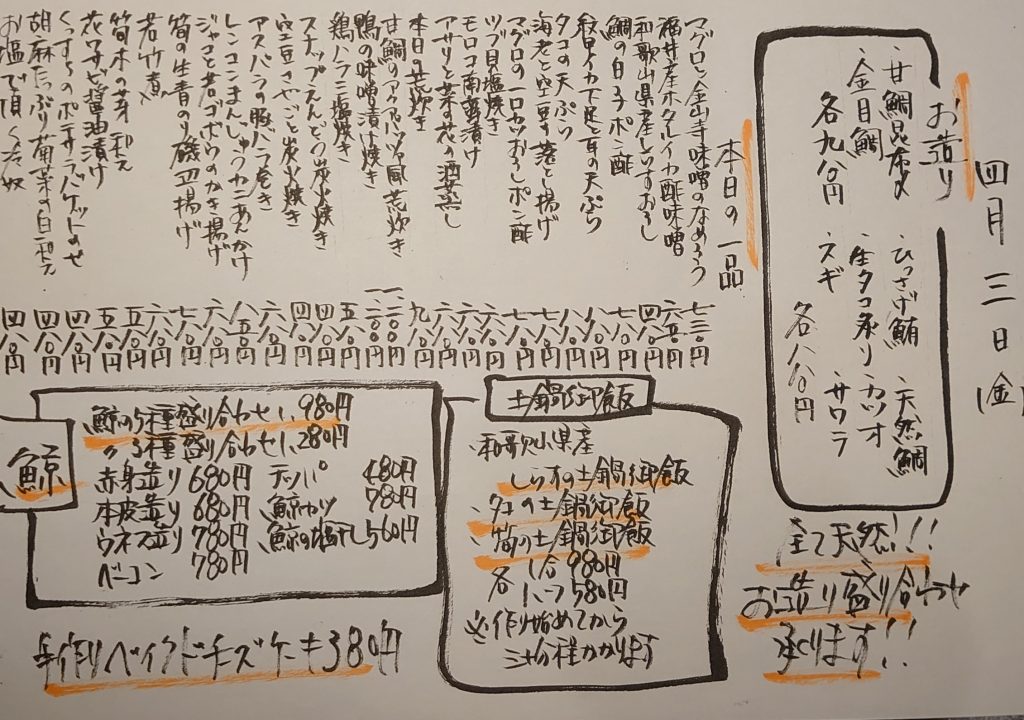 四月三日(金)
お造り
甘鯛昆布〆
金目鯛
各九八〇円
ひっさげ鮪 天然鯛
生タコ造り カツオ
スギ サワラ
各八八〇円
全て天然!!
お造り盛り合わせ
承ります!!
本日の一品
マグロと金山寺味噌のなめろう 七三〇円
福井産ホタルイカ酢味噌 六五〇円
和歌山県産しらすおろし 四八〇円
鯛の白子ポン酢 七八〇円
紋甲イカ下足と耳の天ぷら 八八〇円
タコの天ぷら 八八〇円
海老と空豆の落とし揚げ 七八〇円
マグロの一口カツおろしポン酢 七八〇円
ツブ貝塩焼き 六八〇円
モロコ南蛮漬け 六八〇円
アサリと菜の花の酒蒸し 六八〇円
本日の荒炊き 九八〇円
甘鯛のアクアパッツァ風荒炊き
鴨の味噌漬け焼き
鶏ハラミ塩焼き 五八〇円
スナップえんどう炭火焼き 四八〇円
空豆さやごと炭火焼き 四八〇円
アスパラの豚バラ巻き 六八〇円
レンコンまんじゅうカニあんかけ 八五〇円
ジャコと若ゴボウのかき揚げ 六八〇円
筍の生青のり磯辺揚げ 七八〇円
若竹煮 六八〇円
筍木の芽和え 五八〇円
花ワサビ醤油漬け 五八〇円
くっすうのポテサラバケットのせ 四八〇円
胡麻たっぷり菊菜の白和え 四八〇円
お塩で頂く冷奴 四八〇円
土鍋御飯
和歌山県産
しらすの土鍋御飯
タコの土鍋御飯
筍の土鍋御飯
各 1合 980円
1/2 580円
※作り始めてから
三十分程かかります
鯨
鯨の5種盛り合わせ 1,980円
〃3種盛り合わせ 1,280円
赤身造り 680円 テッパ 480円
本皮造り 680円 鯨カツ 780円
ウネス造り 780円 鯨の塩干し 560円
ベーコン 780円
手作りベイクドチーズケーキ380円